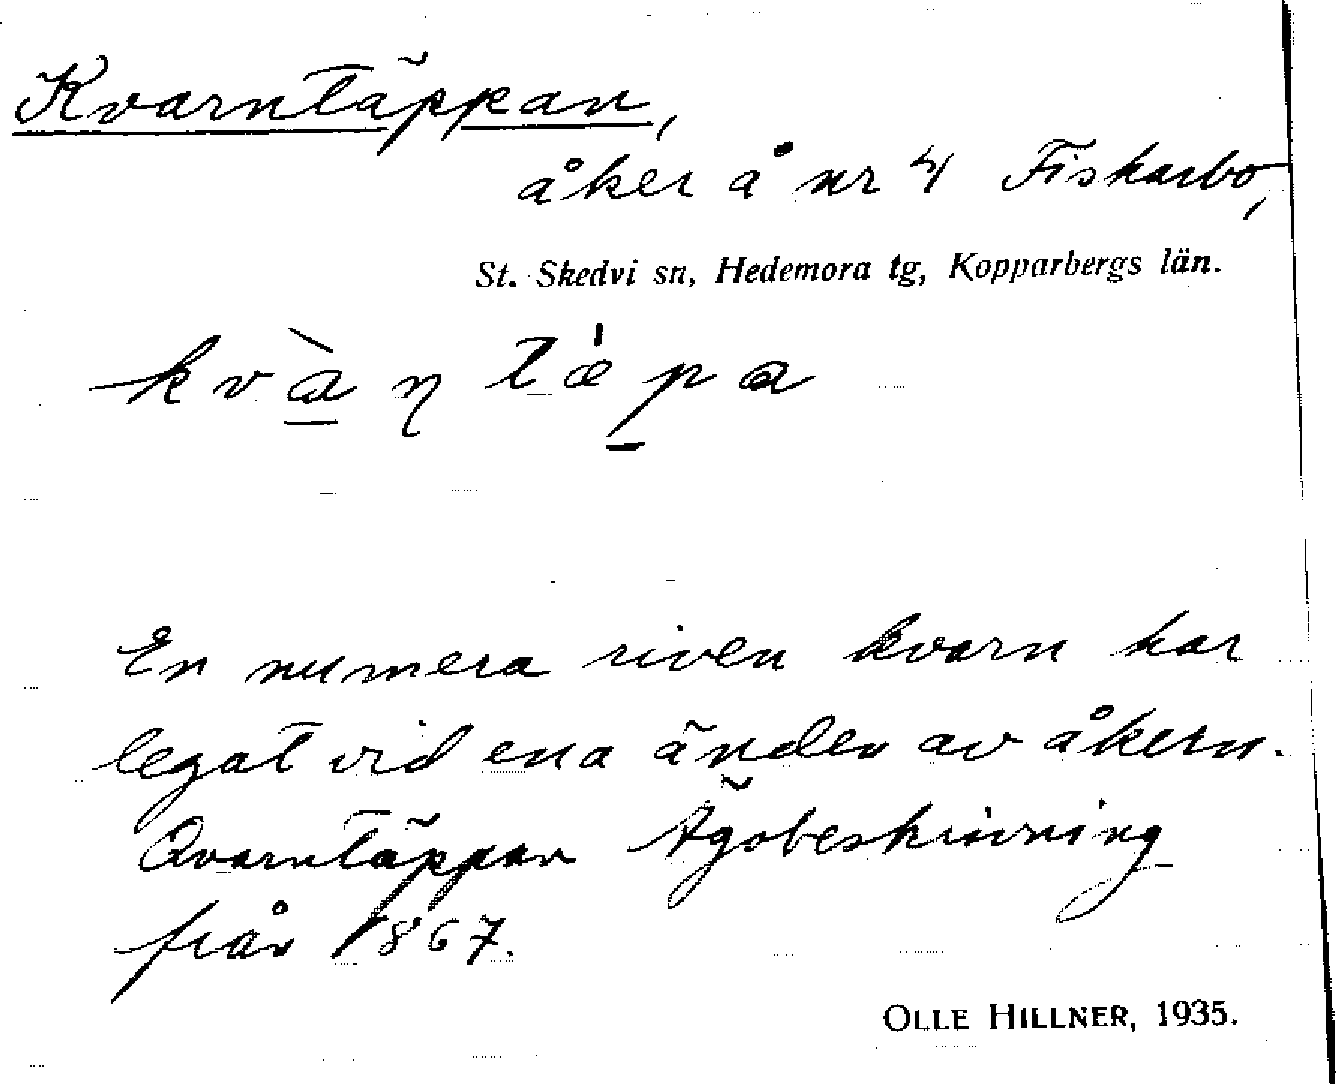 Kvarntäppan,
åker å nr 4 Fiskarbo,
St. Skedvi sn, Hedemora tg, Kopparbergs län.
En numera riven kvarn har
legat vid ena änden av åkern.
Qvarntäppan Ägobeskrivning
från 1867.
OLLE HILLNER, 1935.